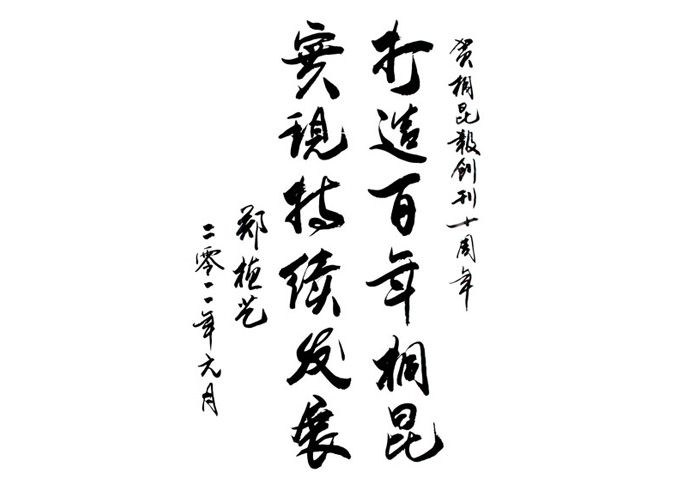 贺桐昆報創刊十周年
打造百年桐昆
實現持续发展
郑植艺
二零一一年元月